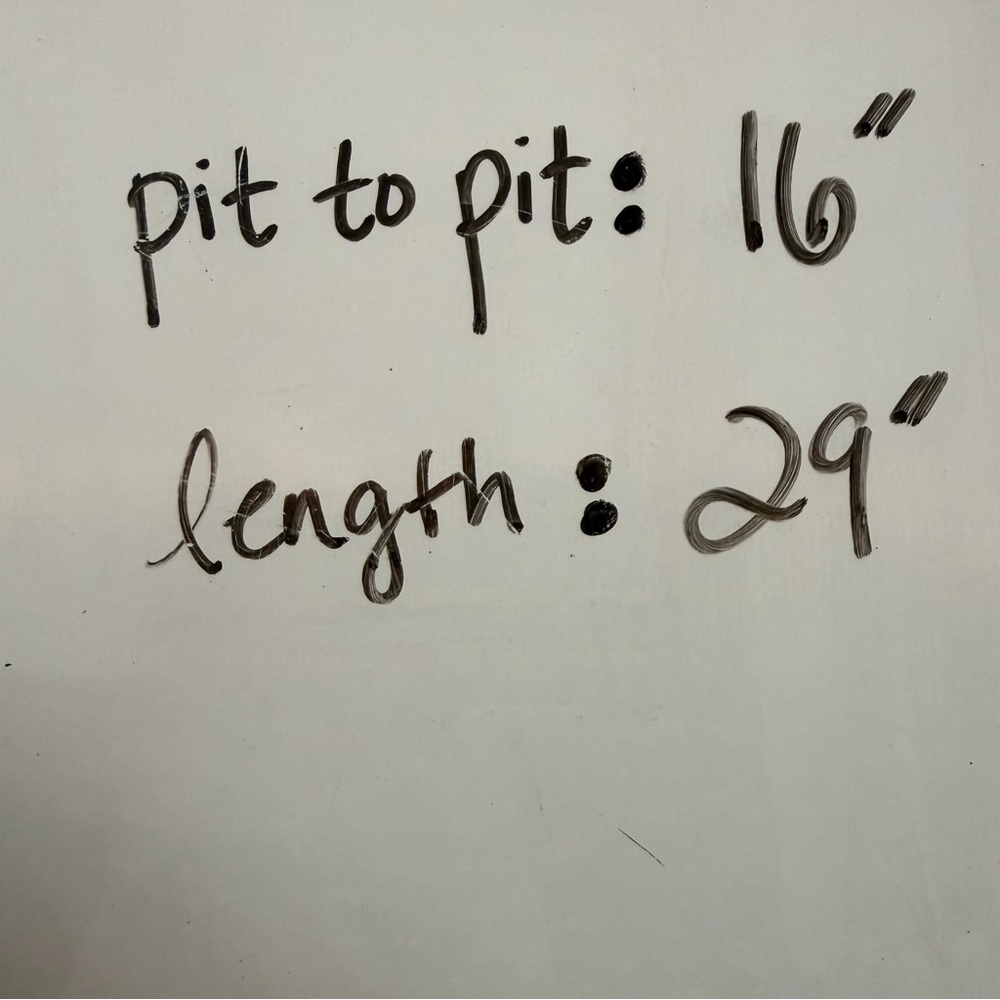 pit to pit: 16"
length: 29"